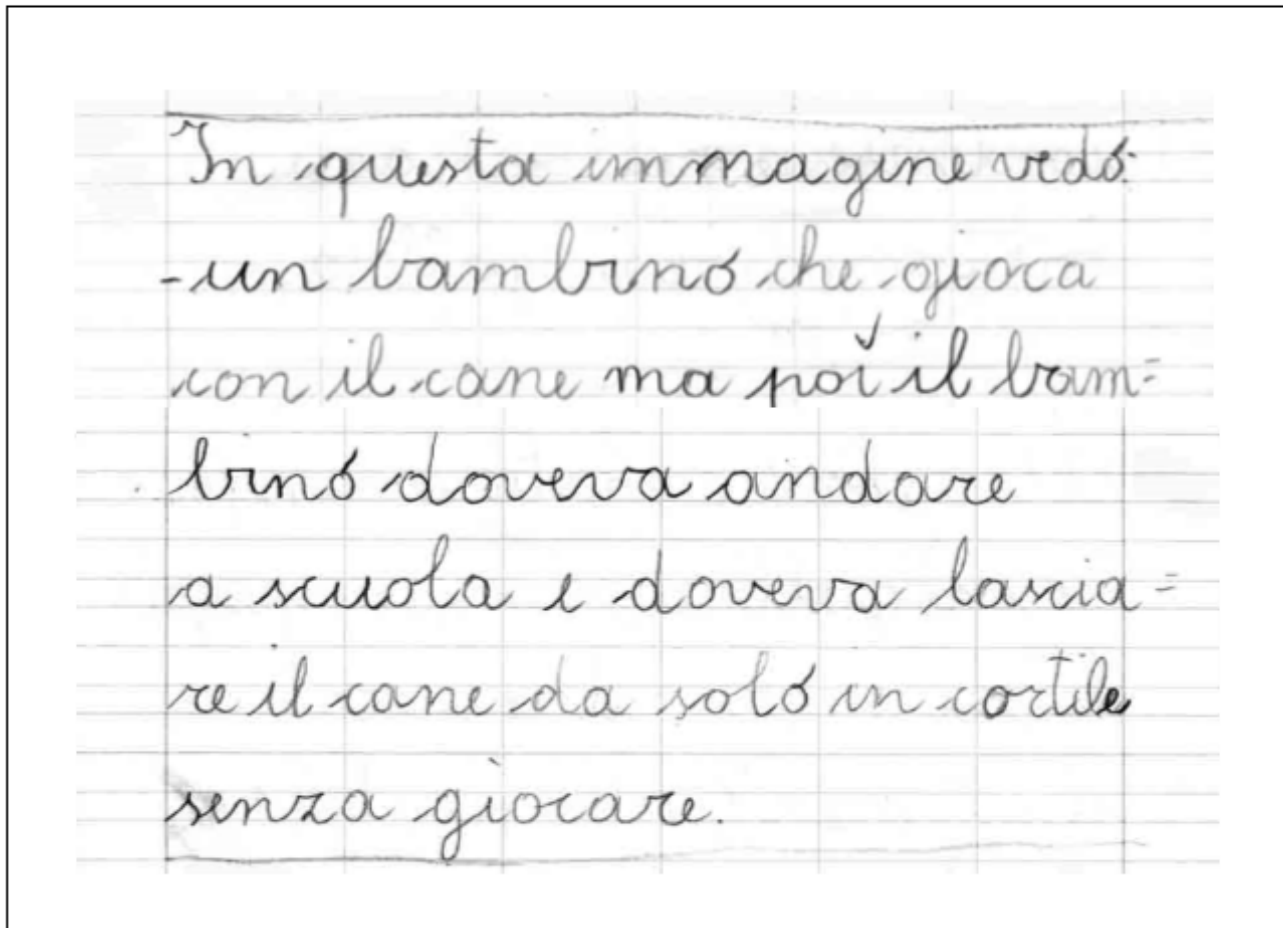 In questa immagine vedo:
-un bambino che gioca
con il cane ma poi il bam=
bino doveva andare
a scuola e doveva lascia=
re il cane da solo in cortile
senza giocare.